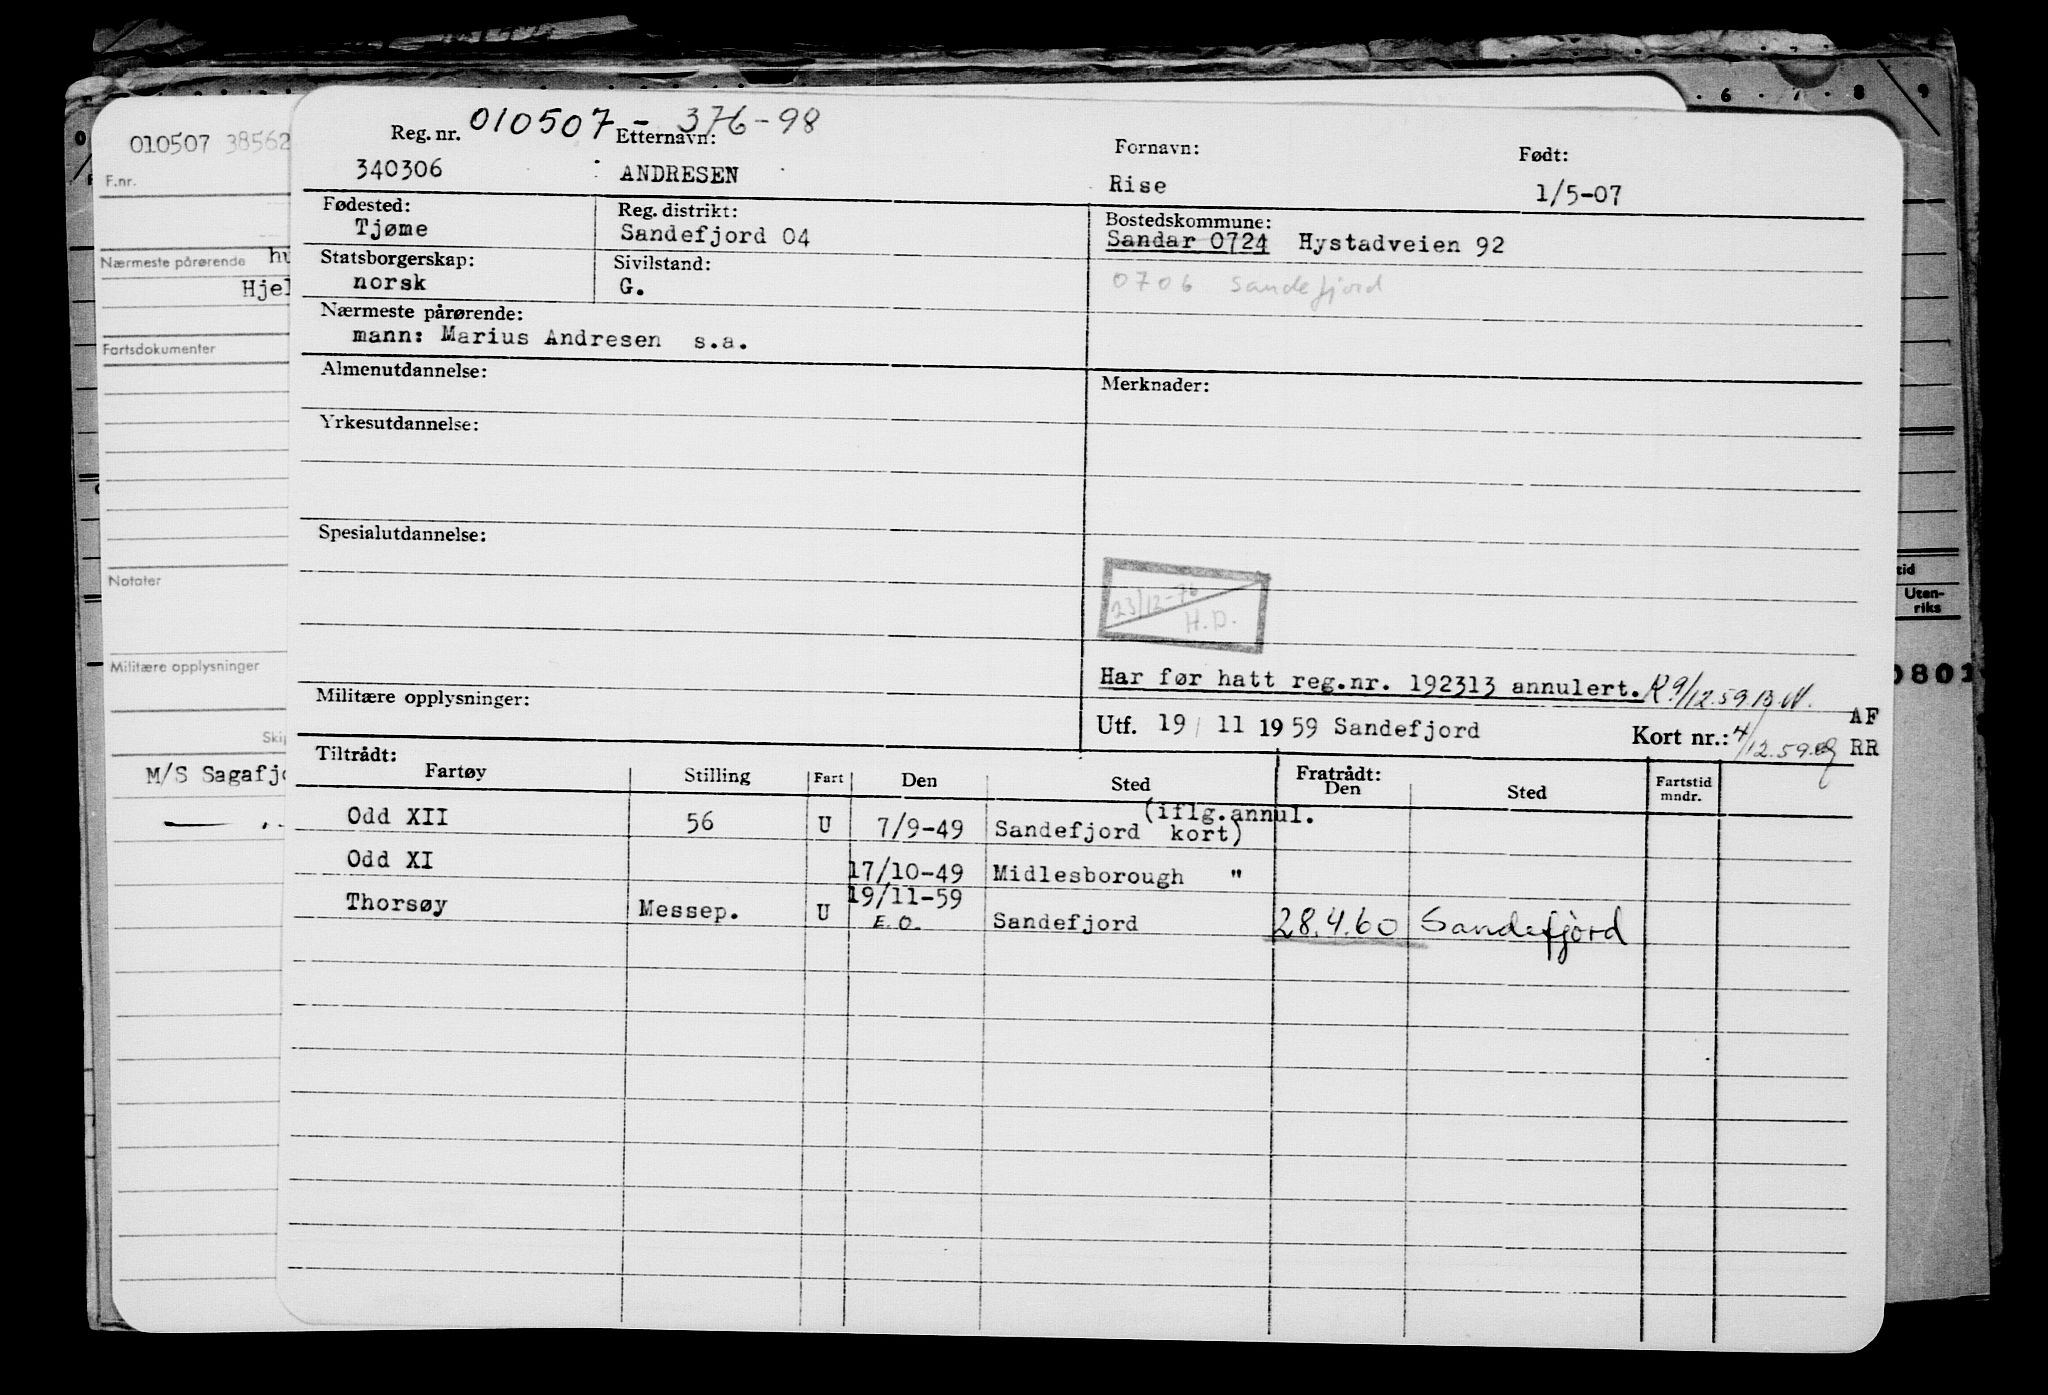 010507 38562
F.nr.
Nærmeste pårørende hu
Hjel
Fartsdokumenter
Notater
Militære opplysninger
Skip
M/S Sagafjo
6 7 8 9
tid
Uten-
riks
0801
010507 - 376-98
Reg. nr. Etternavn: Fornavn: Født:
340306 ANDRESEN Rise 1/5-07
Fødested: Reg. distrikt: Bostedskommune:
Tjøme Sandefjord 04 Sandar 0724 Hystadveien 92
Statsborgerskap: Sivilstand:
norsk G. 0706 Sandefjord
Nærmeste pårørende:
mann: Marius Andresen s.a.
Almenutdannelse: Merknader:
Yrkesutdannelse:
Spesialutdannelse:
23/12-76
H.D.
Har før hatt reg.nr. 192313 annulert. K 9/12.59 B.W.
Militære opplysninger:
Utf. 19/11 1959 Sandefjord Kort nr.: 4/12.59 AF
RR
Tiltrådt: Fratrådt:
Fartøy Stilling Fart Den Sted Den Sted Fartstid
mndr.
Odd XII 56 U 7/9-49 Sandefjord (iflg.annul.
kort)
Odd XI 17/10-49 Midlesborough "
Thorsøy Messep. U 19/11-59 Sandefjord 28.4.60 Sandefjord
E.O.